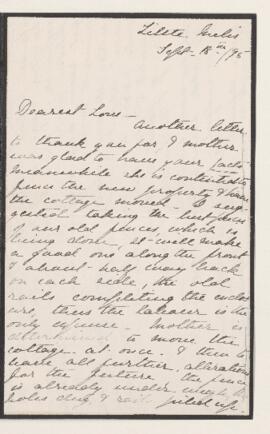 Little Metis
Sept. 18th/95
Dearest Lou -
Another letter
to thank you for & mother
was glad to have your
meanwhile she is contented to
fence the new property & have
the cottage moved. I sug-
gested taking the best pieces
of our old fence, which is
being done, it will make
a good one along the front
& about half way back
on each side, the old
rails completing the enclos
ure, thus the labour is the
only expense. Mother is
determined to move the
cottage at once. I then to
leave all further alterations
for the future. the fence
is already under weigh, the
holes dug & rails piled up.